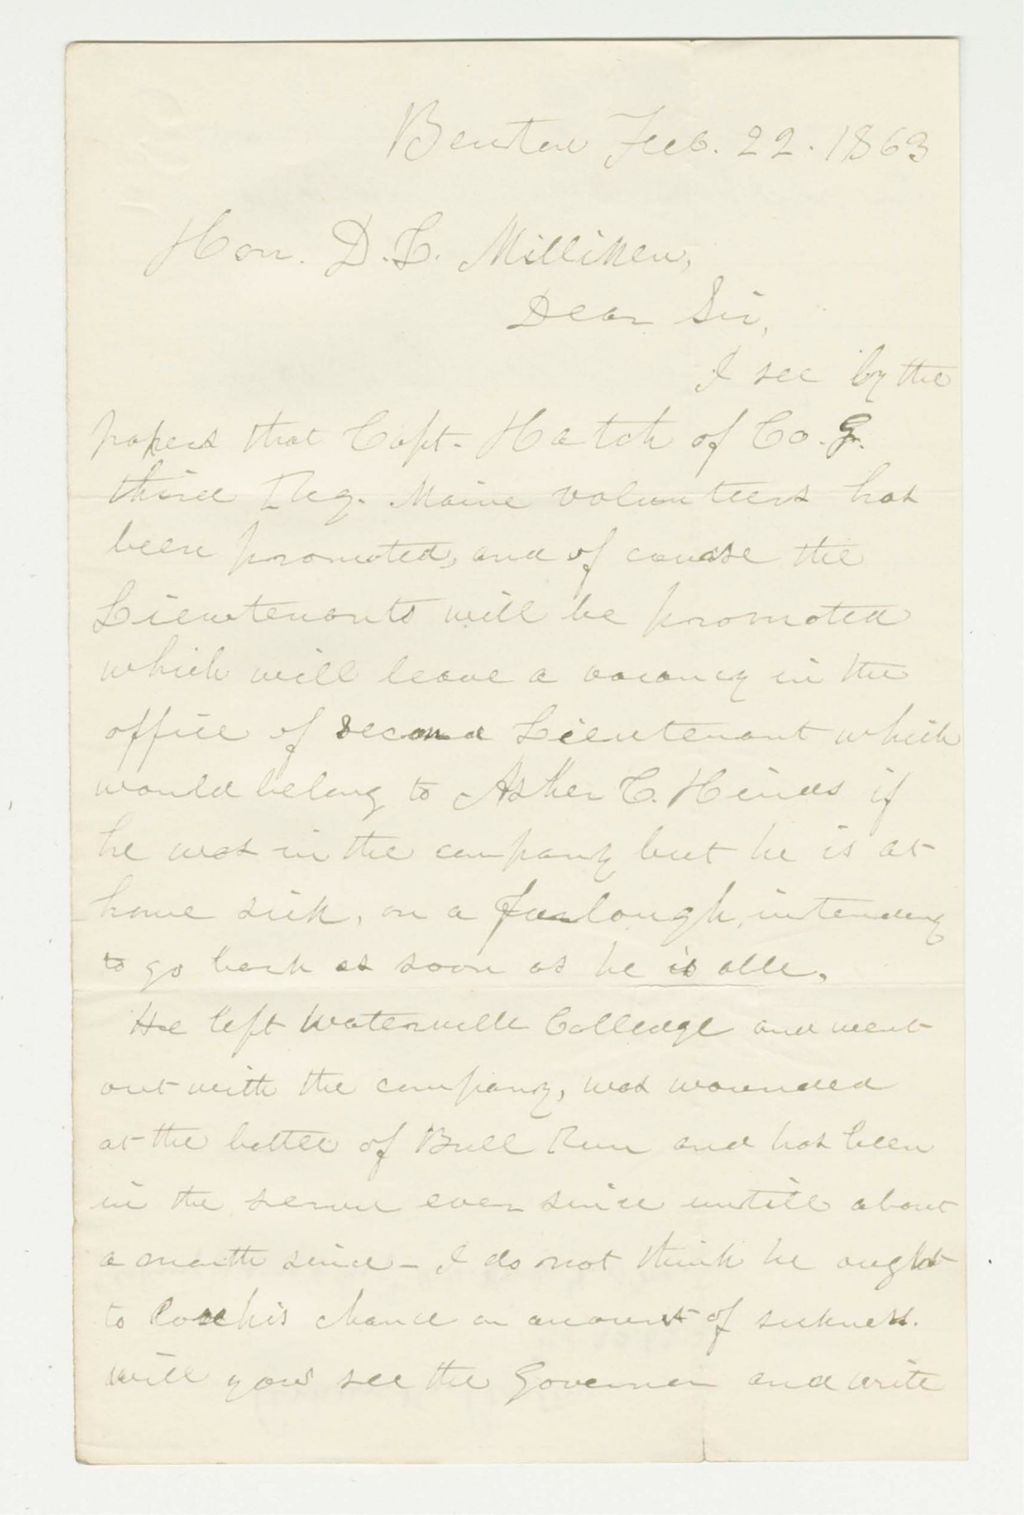 Benton Feb. 22. 1863
Hon. D. L. Milliken,
Dear Sir,
I see by the
papers that Capt. Hatch of Co. G.
third Reg. Maine volunteers has
been promoted, and of course the
Lieutenants will be promoted
which will leave a vacancy in the
office of second Lieutenant which
would belong to Asher C. Hinds if
he was in the company but he is at
home sick, on a furlough, intending
to go back as soon as he is able.
He left Waterville Colledge and went
out with the company, was wounded
at the battle of Bull Run and has been
in the servic ever since untill about
a month since - I do not think he ought
to lose his chance on account of sickness.
will you see the Governor and write